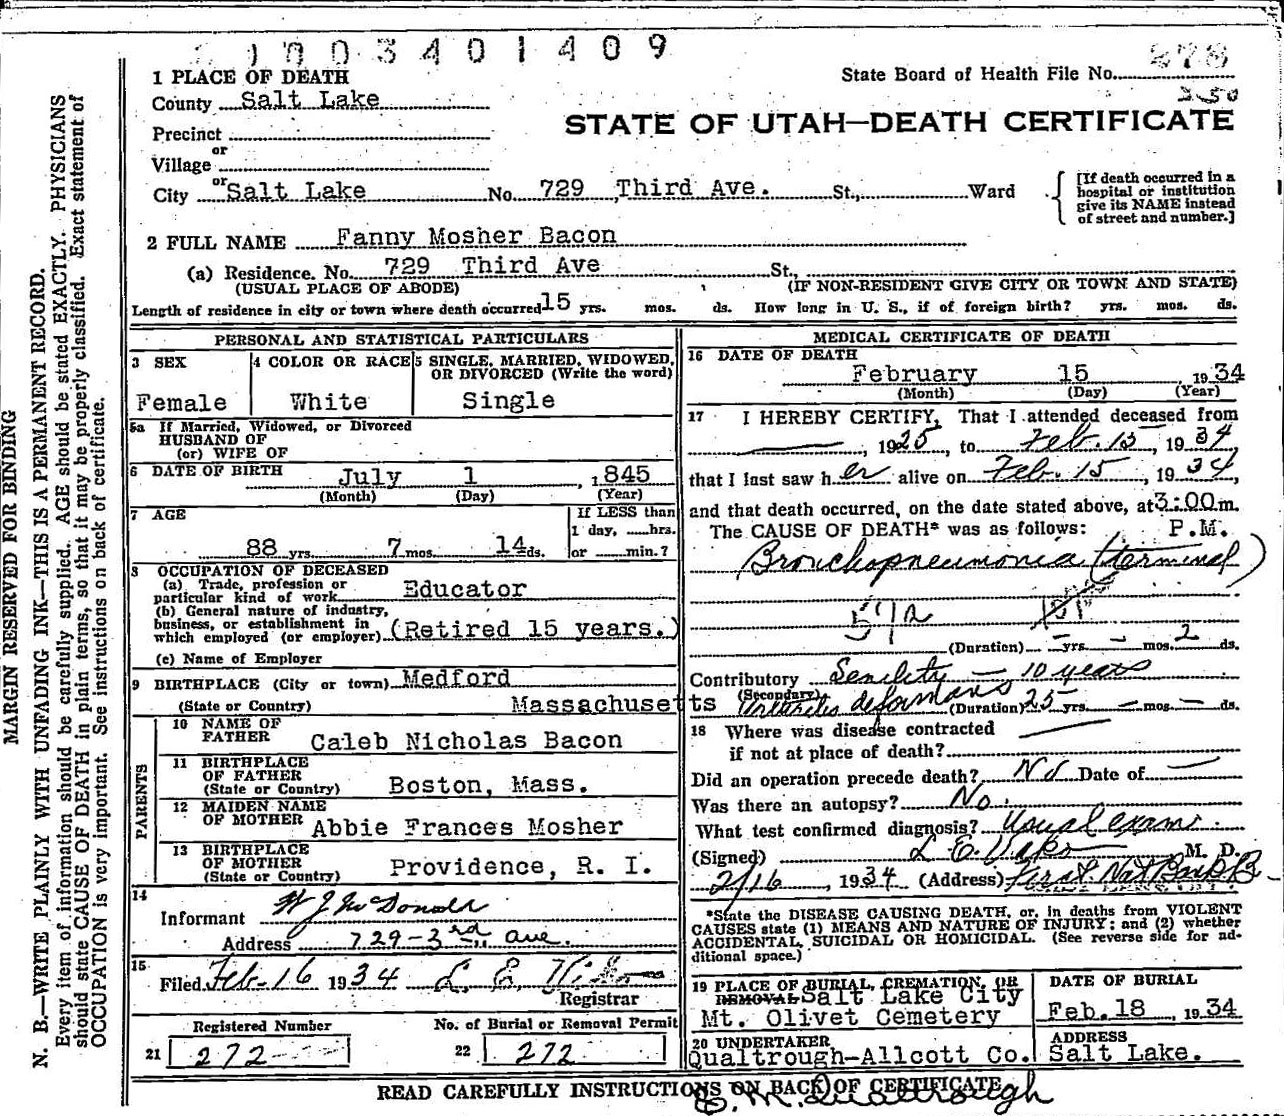 1003401409
1 PLACE OF DEATH
State Board of Health File No. 278
County Salt Lake
350
STATE OF UTAH—DEATH CERTIFICATE
Precinct
or
Village
or
City Salt Lake No. 729 Third Ave. St., Ward
[If death occurred in a
hospital or institution
give its NAME instead
of street and number.]
2 FULL NAME Fanny Mosher Bacon
(a) Residence. No. 729 Third Ave St.,
(USUAL PLACE OF ABODE) (IF NON-RESIDENT GIVE CITY OR TOWN AND STATE)
Length of residence in city or town where death occurred 15 yrs. mos. ds. How long in U. S., if of foreign birth? yrs. mos. ds.
PERSONAL AND STATISTICAL PARTICULARS
3 SEX
Female
4 COLOR OR RACE
White
5 SINGLE, MARRIED, WIDOWED,
OR DIVORCED (Write the word)
Single
5a If Married, Widowed, or Divorced
HUSBAND OF
(or) WIFE OF
6 DATE OF BIRTH July 1, 1845
(Month) (Day) (Year)
7 AGE
88 yrs. 7 mos. 14 ds.
If LESS than
1 day, hrs.
or min.?
8 OCCUPATION OF DECEASED
(a) Trade, profession or
particular kind of work Educator
(b) General nature of industry,
business, or establishment in
which employed (or employer) (Retired 15 years.)
(c) Name of Employer
9 BIRTHPLACE (City or town) Medford
(State or Country) Massachusetts
PARENTS
10 NAME OF
FATHER Caleb Nicholas Bacon
11 BIRTHPLACE
OF FATHER
(State or Country) Boston, Mass.
12 MAIDEN NAME
OF MOTHER Abbie Frances Mosher
13 BIRTHPLACE
OF MOTHER
(State or Country) Providence, R. I.
14
Informant W J McDonald
Address 729-3rd ave.
15
Filed Feb-16 1934 L. E.
Registrar
Registered Number
21 272
No. of Burial or Removal Permit
22 272
MEDICAL CERTIFICATE OF DEATH
16 DATE OF DEATH
February 15 1934
(Month) (Day) (Year)
17 I HEREBY CERTIFY, That I attended deceased from
1925, to Feb. 15, 1934
that I last saw her alive on Feb. 15, 1934,
and that death occurred, on the date stated above, at 3:00 m.
The CAUSE OF DEATH* was as follows: P.M.
Bronchopneumonia (terminal)
57a
(Duration) — yrs. — mos. 2 ds.
Contributory Senility — 10 years
(Secondary) deformans (Duration) 25 yrs. — mos. — ds.
18 Where was disease contracted
if not at place of death?
Did an operation precede death? No Date of —
Was there an autopsy? No.
What test confirmed diagnosis? Usual exam.
(Signed) L. E. M. D.
2/16, 1934 (Address) First Nat Bank B
*State the DISEASE CAUSING DEATH, or, in deaths from VIOLENT
CAUSES state (1) MEANS AND NATURE OF INJURY; and (2) whether
ACCIDENTAL, SUICIDAL OR HOMICIDAL. (See reverse side for ad-
ditional space.)
19 PLACE OF BURIAL, CREMATION, OR
REMOVAL Salt Lake City
Mt. Olivet Cemetery
DATE OF BURIAL
Feb. 18, 1934
20 UNDERTAKER
Qualtrough-Allcott Co.
ADDRESS
Salt Lake.
READ CAREFULLY INSTRUCTIONS ON BACK OF CERTIFICATE
Qualtrough
MARGIN RESERVED FOR BINDING
N. B.—WRITE PLAINLY WITH UNFADING INK—THIS IS A PERMANENT RECORD.
Every item of information should be carefully supplied. AGE should be stated EXACTLY. PHYSICIANS
should state CAUSE OF DEATH in plain terms, so that it may be properly classified. Exact statement of
OCCUPATION is very important. See instructions on back of certificate.